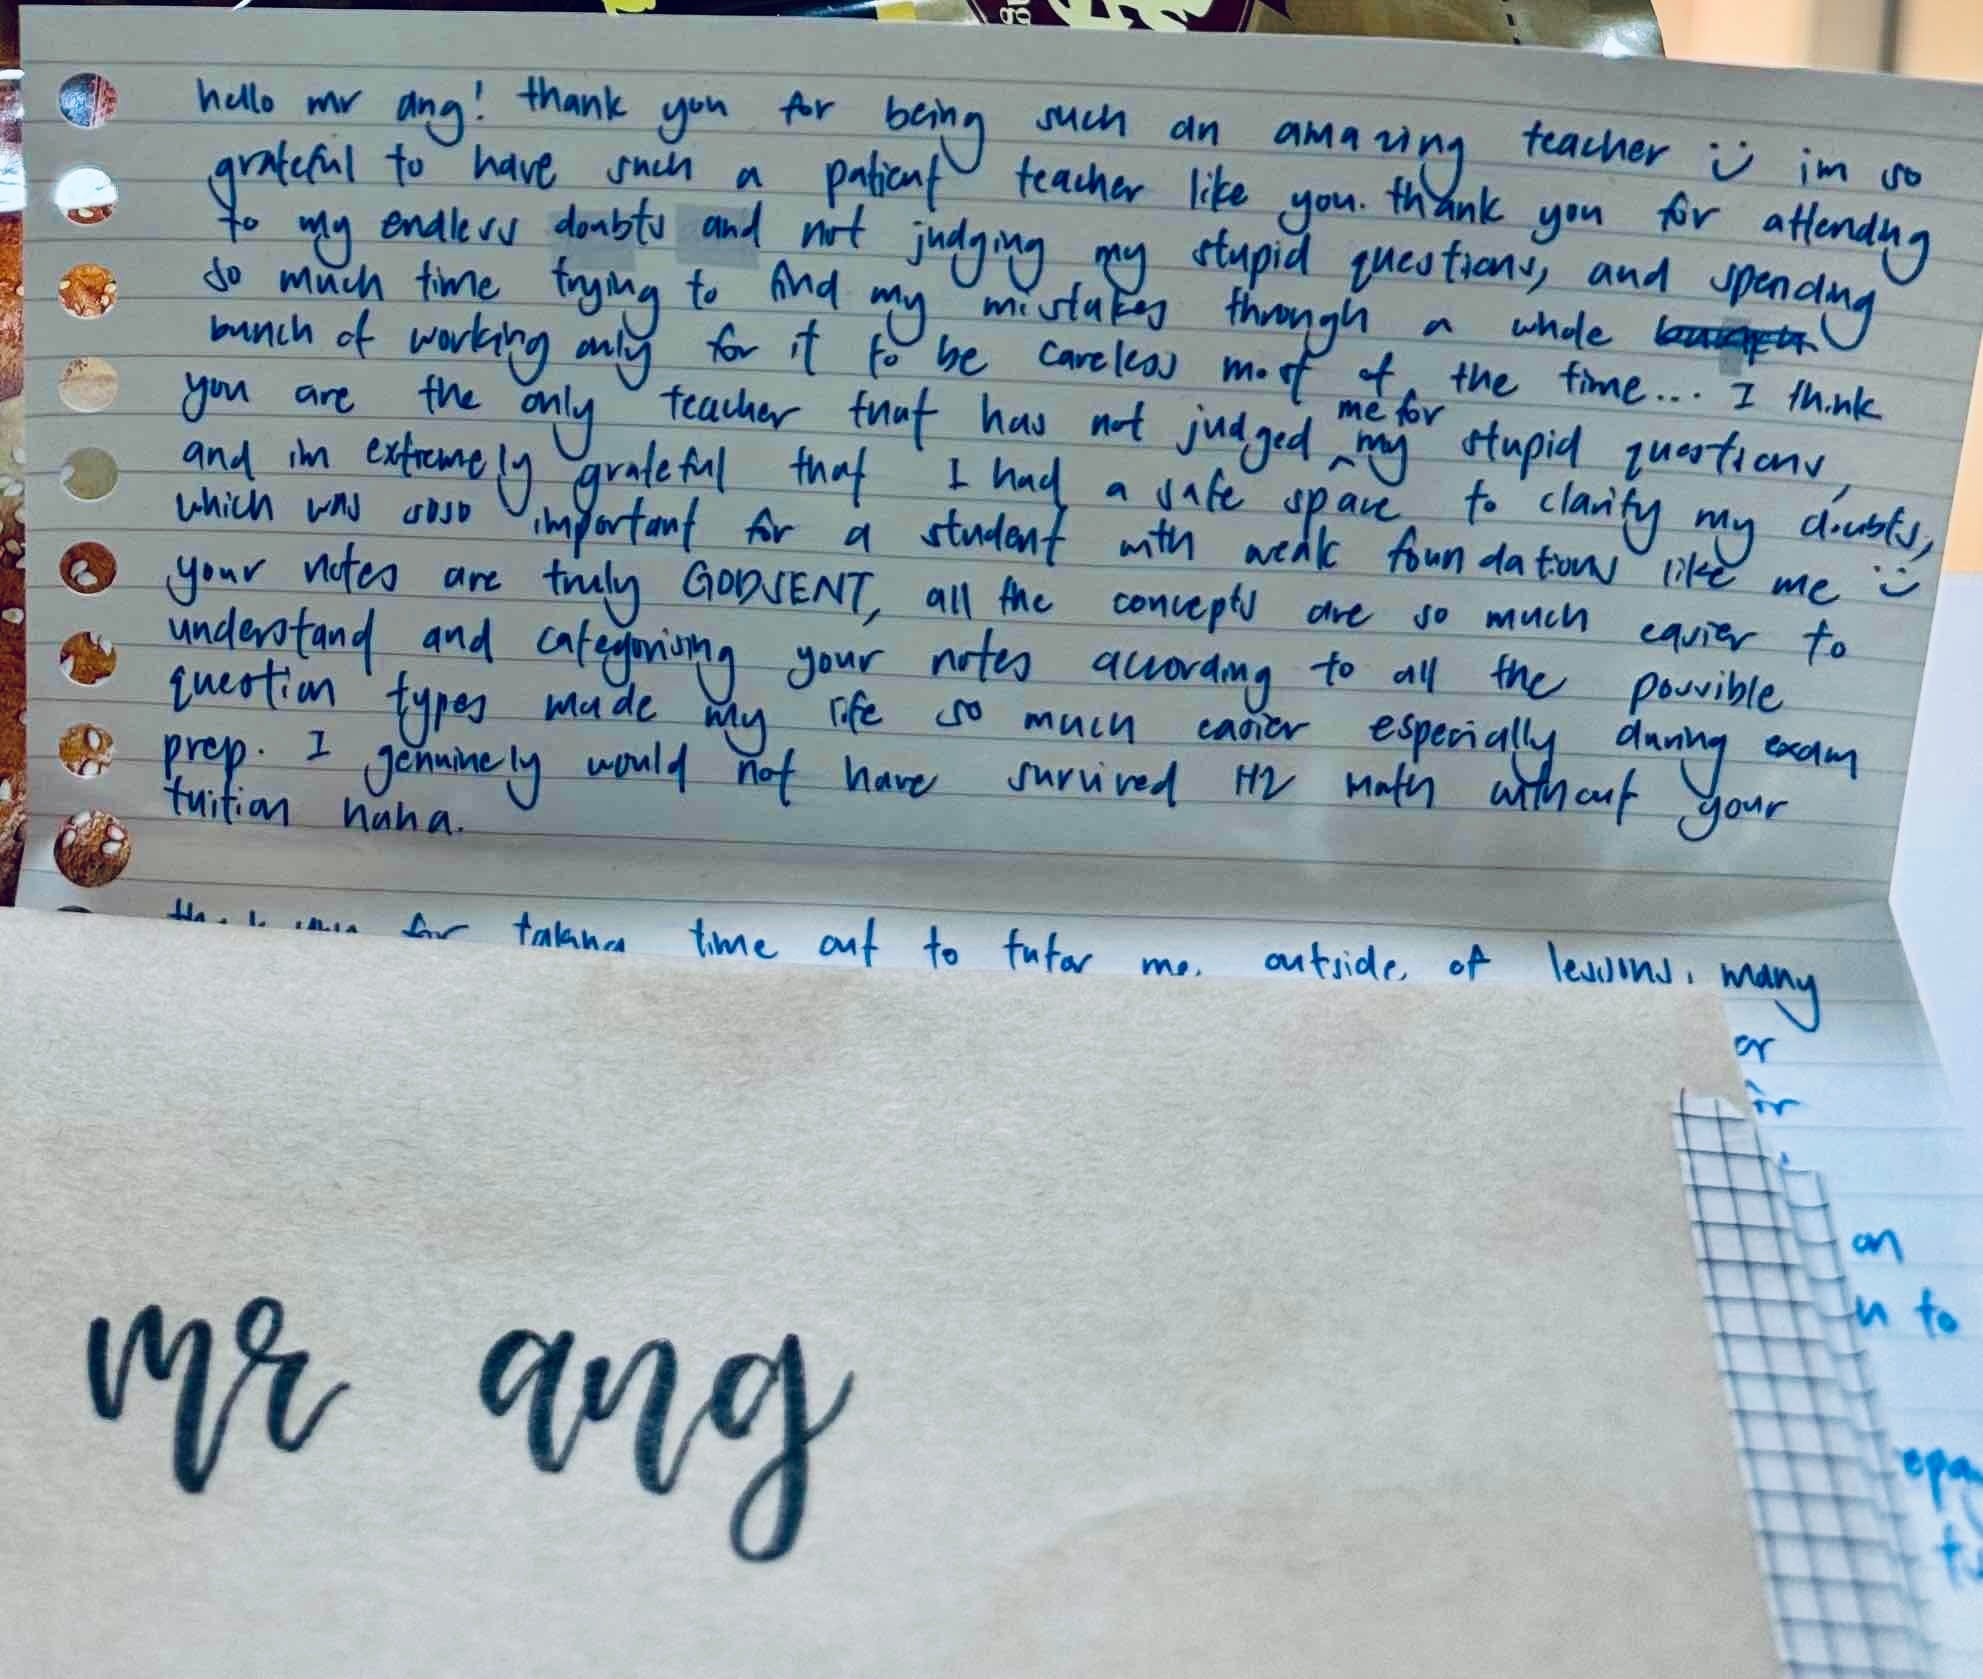 hello mr ang! thank you for being such an amazing teacher :) im so
grateful to have such a patient teacher like you. thank you for attending
to my endless doubts and not judging my stupid questions, and spending
so much time trying to find my mistakes through a whole
bunch of working only for it to be careless most of the time... I think
you are the only teacher that has not judged me for my stupid questions,
and im extremely grateful that I had a safe space to clarify my doubts,
which was soso important for a student with weak foundations like me :)
your notes are truly GODSENT, all the concepts are so much easier to
understand and categorising your notes according to all the possible
question types made my life so much easier especially during exam
prep. I genuinely would not have survived H2 math without your
tuition haha.
thank you for taking time out to tutor me outside of lessons, many
or
for
on
to
mr ang